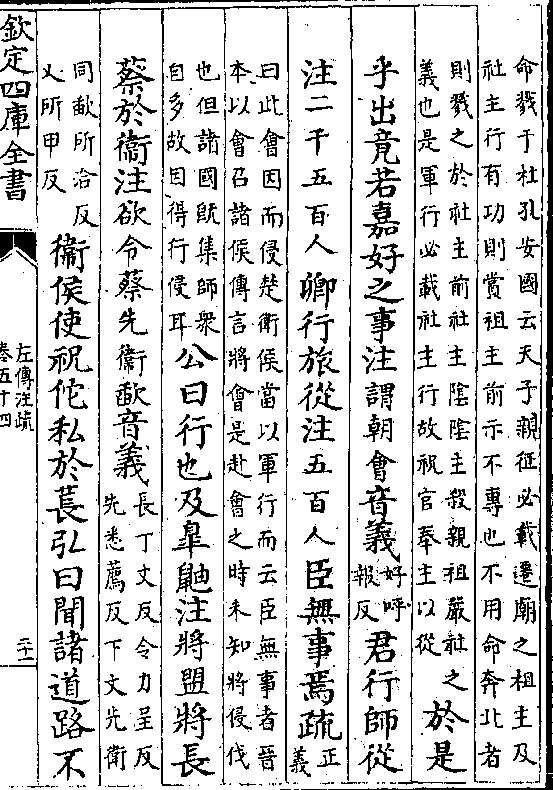 命戮于社孔安國云天子親征必載遷廟之祖主及
社主行有功則賞祖主前示不專也不用命奔北者
則戮之於社主前社主陰陰主殺親祖嚴社之
義也是軍行必載社主行故祝官奉主以從
於是
乎出竟若嘉好之事注謂朝會音義
好呼
報反
君行師從
注二千五百人卿行旅從注五百人臣無事焉疏
正
義
曰此會因而侵楚衛侯當以軍行而云臣無事者晉
本以會召諸侯傳言將會是赴會之時未知將侵伐
也但諸國既集師衆
自多故因得行侵耳
公曰行也及臯鼬注將盟將長
蔡於衞注欲令蔡先衞歃音義
長丁丈反令力呈反
先悉薦反下文先衛
同歃所洽反
又所甲反
衞侯使祝佗私於萇弘曰聞諸道路不
欽定四庫全書
左傳注疏
卷五十四
二十一